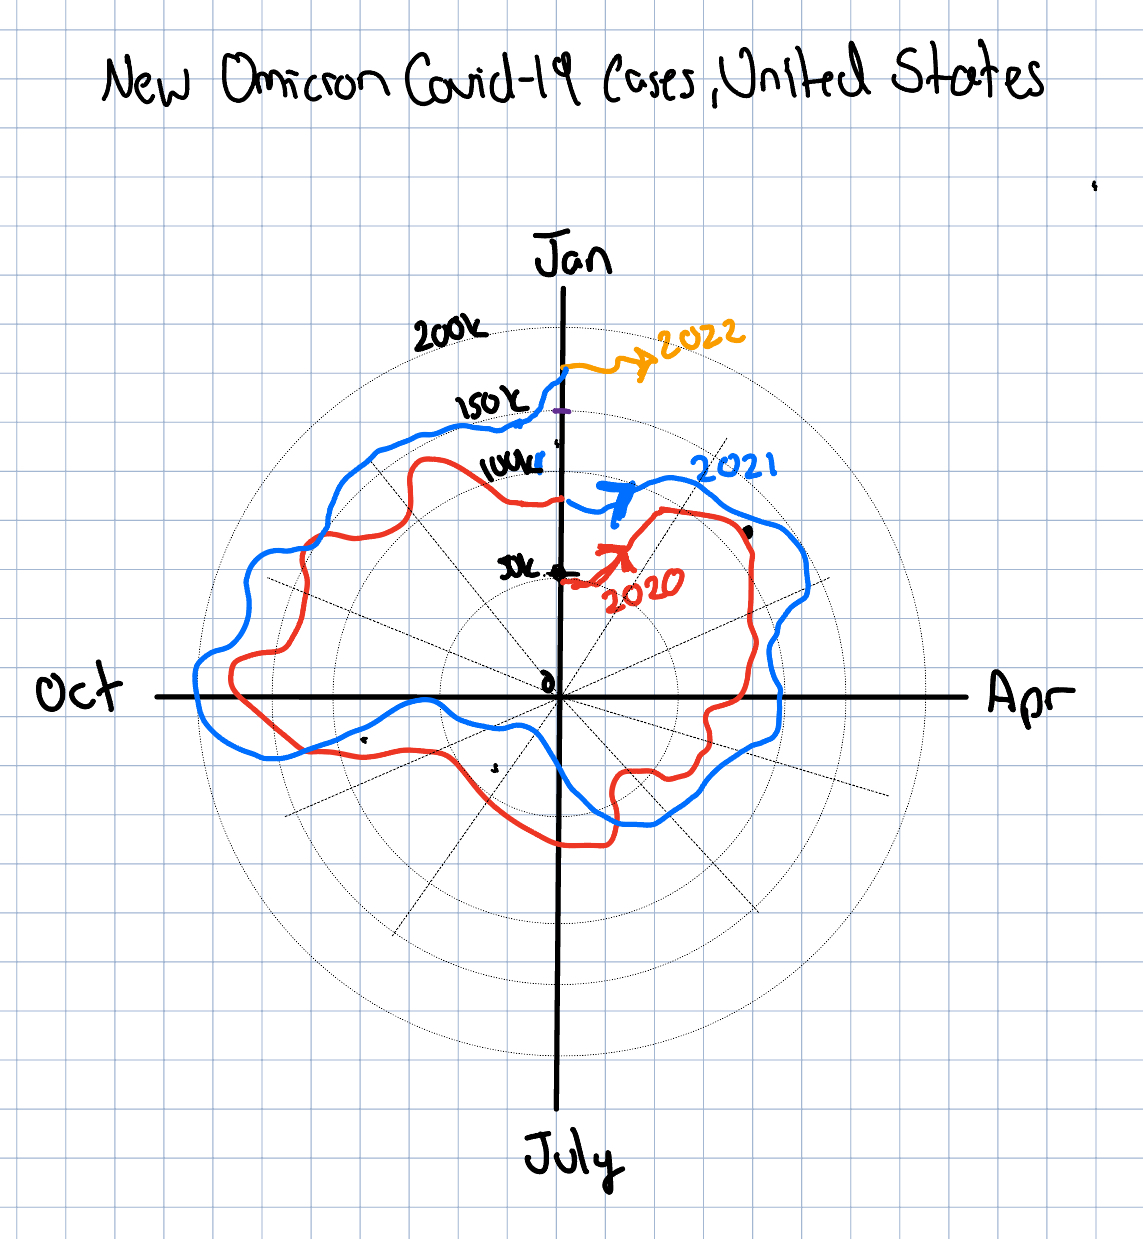 New Omicron Covid-19 Cases, United States
Jan
200k
2022
150k
100k
2021
50k
2020
0
Oct
Apr
July